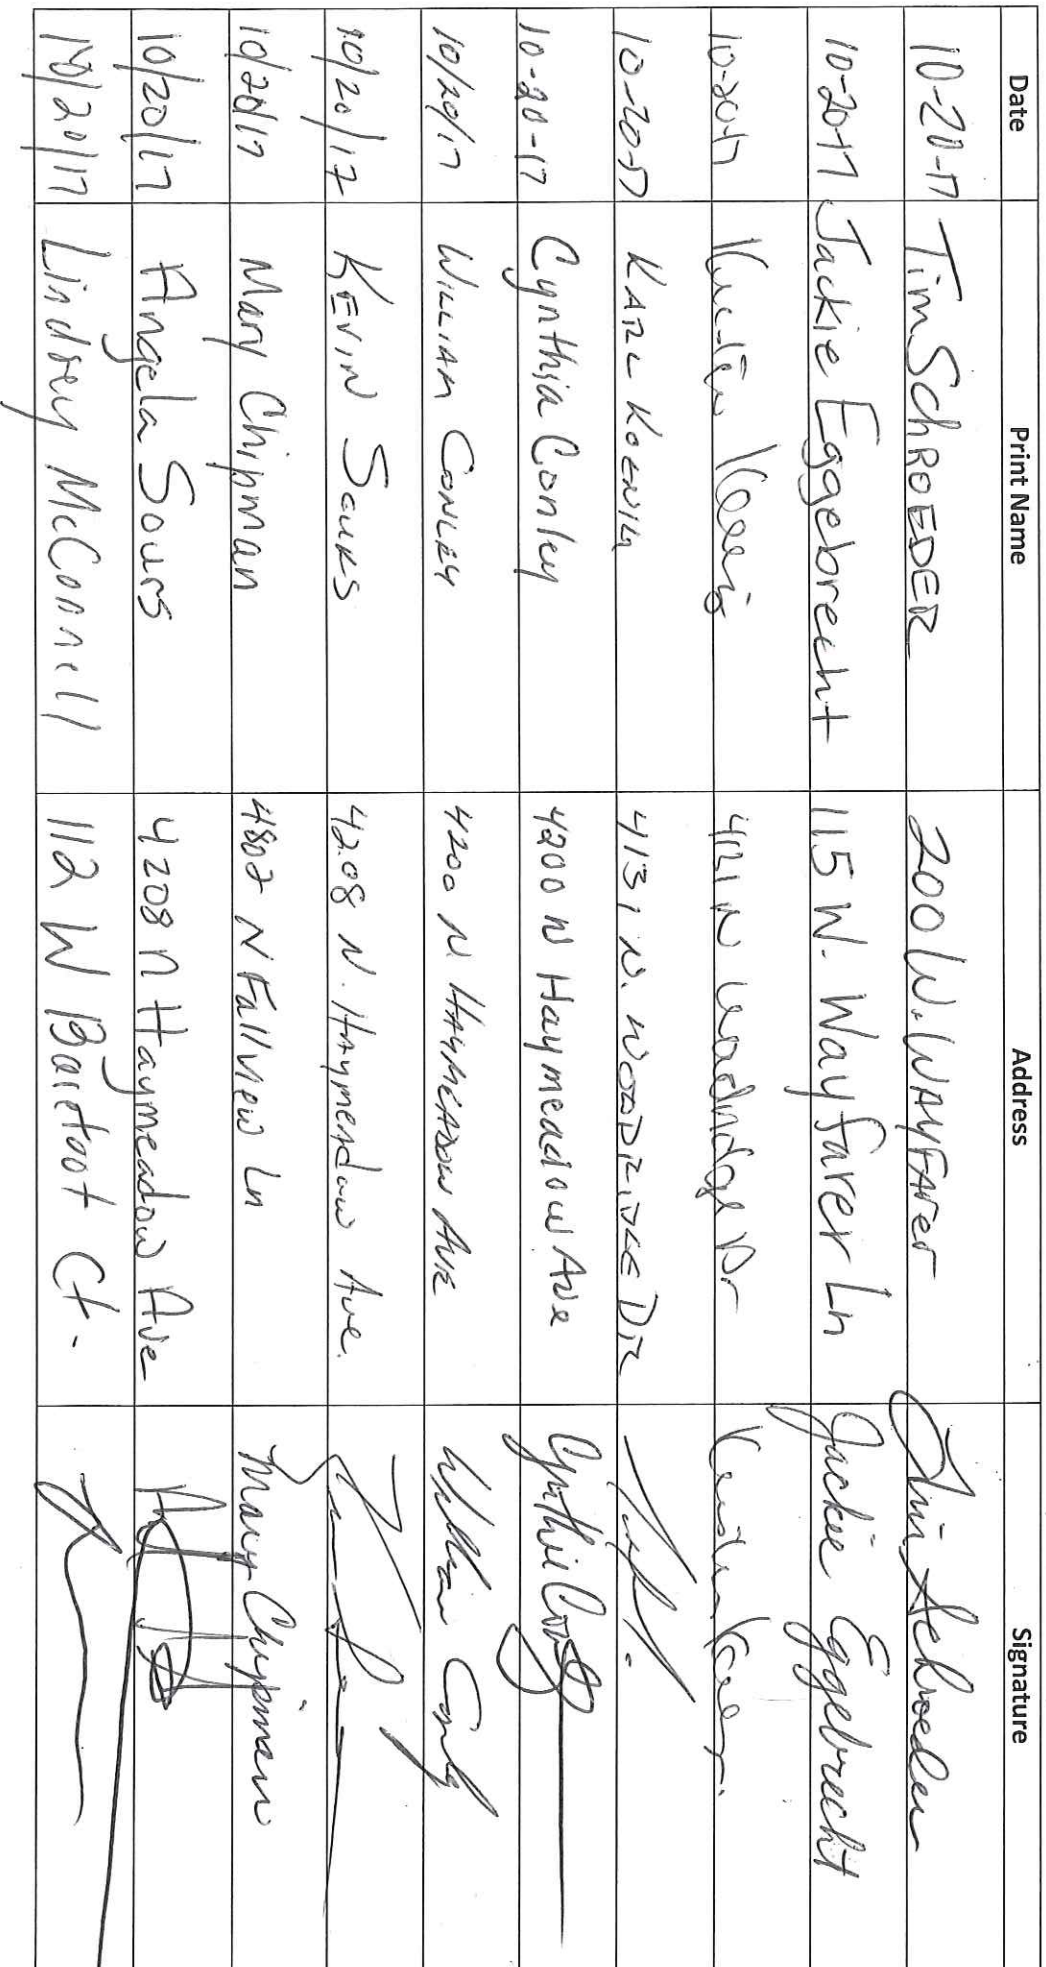 Date Print Name Address Signature
10-20-17 Tim SchROEDER 200 W. WAYFArer Tim Schroeder
10-20-17 Jackie Eggebrecht 115 W. Wayfarer Ln Jackie Eggebrecht
10-20-17 Dr
10-20-17 KARL KOENIG 4131 N. WOODRIDGE DR
10-20-17 Cynthia Conley 4200 N Haymeadow Ave Cynthia
10/20/17 WILLIAM CONLEY 4200 N. HAYMEADOW AVE William Conly
10/20/17 KEVIN SOURS 4208 N. Haymeadow Ave.
10/20/17 Mary Chipman 4802 N Fallview Ln Mary Chipman
10/20/17 Angela Sours 4208 n Haymeadow Ave
10/20/17 Lindsey McConnell 112 W Barefoot Ct.